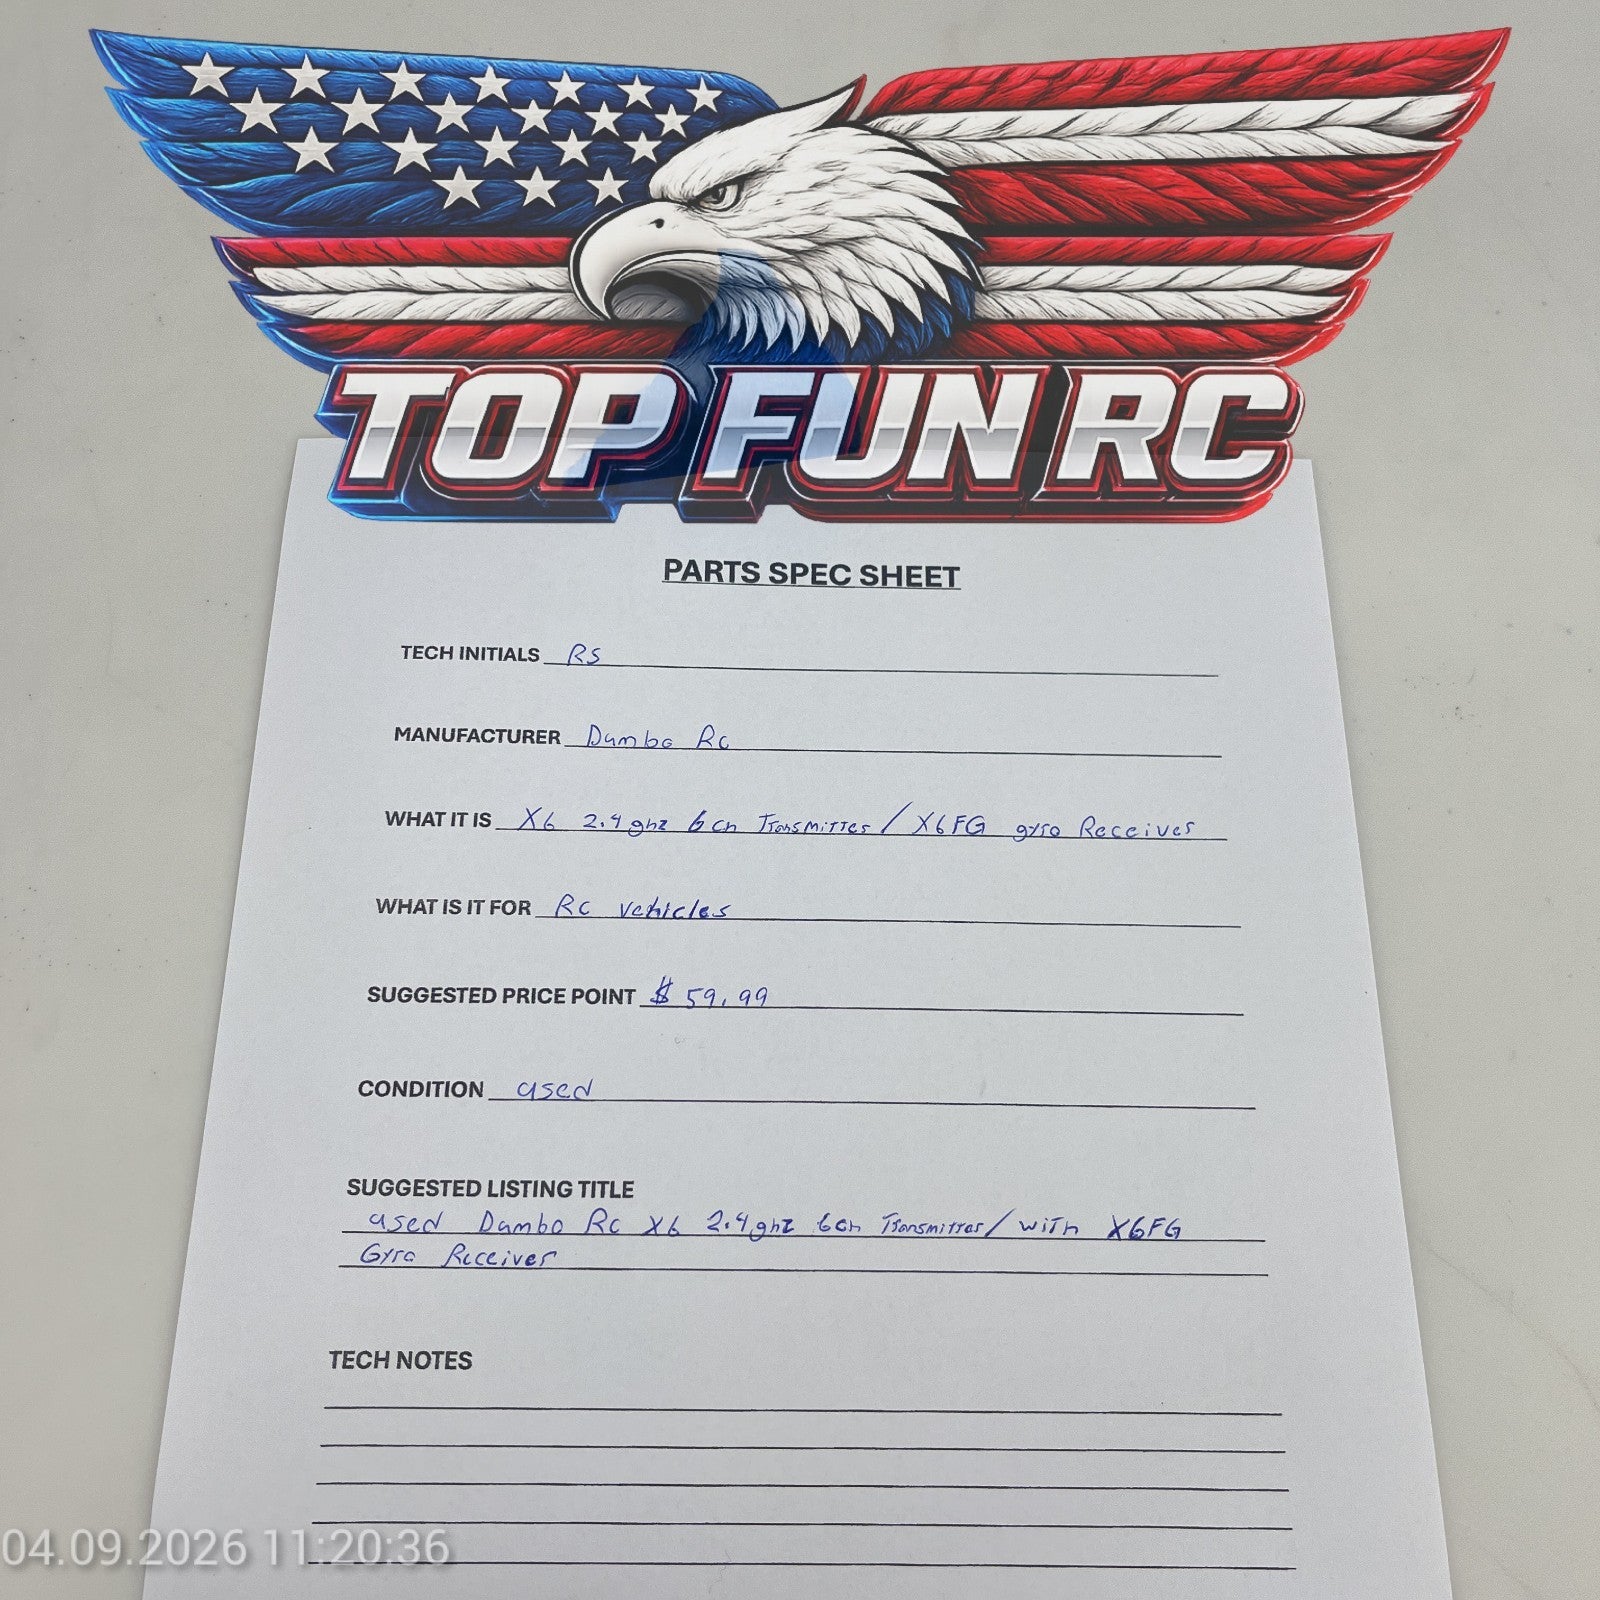 TOP FUN RC
PARTS SPEC SHEET
TECH INITIALS RS
MANUFACTURER Dumbo Rc
WHAT IT IS X6 2.4ghz 6ch Transmitter / X6FG gyro Receiver
WHAT IS IT FOR Rc vehicles
SUGGESTED PRICE POINT $ 59.99
CONDITION used
SUGGESTED LISTING TITLE
used Dumbo Rc X6 2.4ghz 6ch Transmitter/ with X6FG
Gyro Receiver
TECH NOTES
04.09.2026 11:20:36